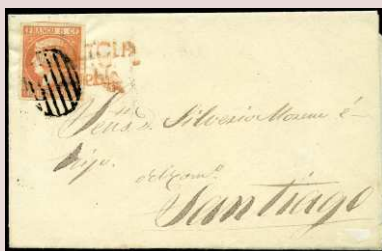 FRANCO 8 Cs
Sres. Silverio Moreno é
hijo.
del com.º
Santiago